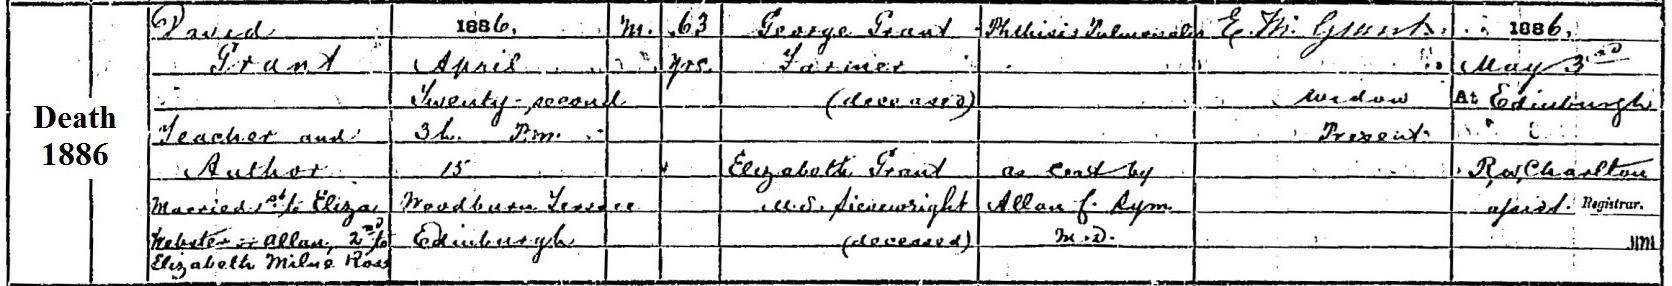 Death
1886
David
Grant
Teacher and
Author
Married 1st to Eliza
Webster or Allan, 2nd to
Elizabeth Milne Ross
1886,
April
Twenty-second
3h. P.m.
15
Woodburn Terrace
Edinburgh
M.
63
yrs.
George Grant
Farmer
(deceased)
Elizabeth Grant
M.S. Sievewright
(deceased)
Phthisis Pulmonalis
as cert by
Allan C. Sym
M.D.
E. M. Grant.
Widow
Present.
1886,
May 3rd
At Edinburgh
R. W. Charlton
assist. Registrar.